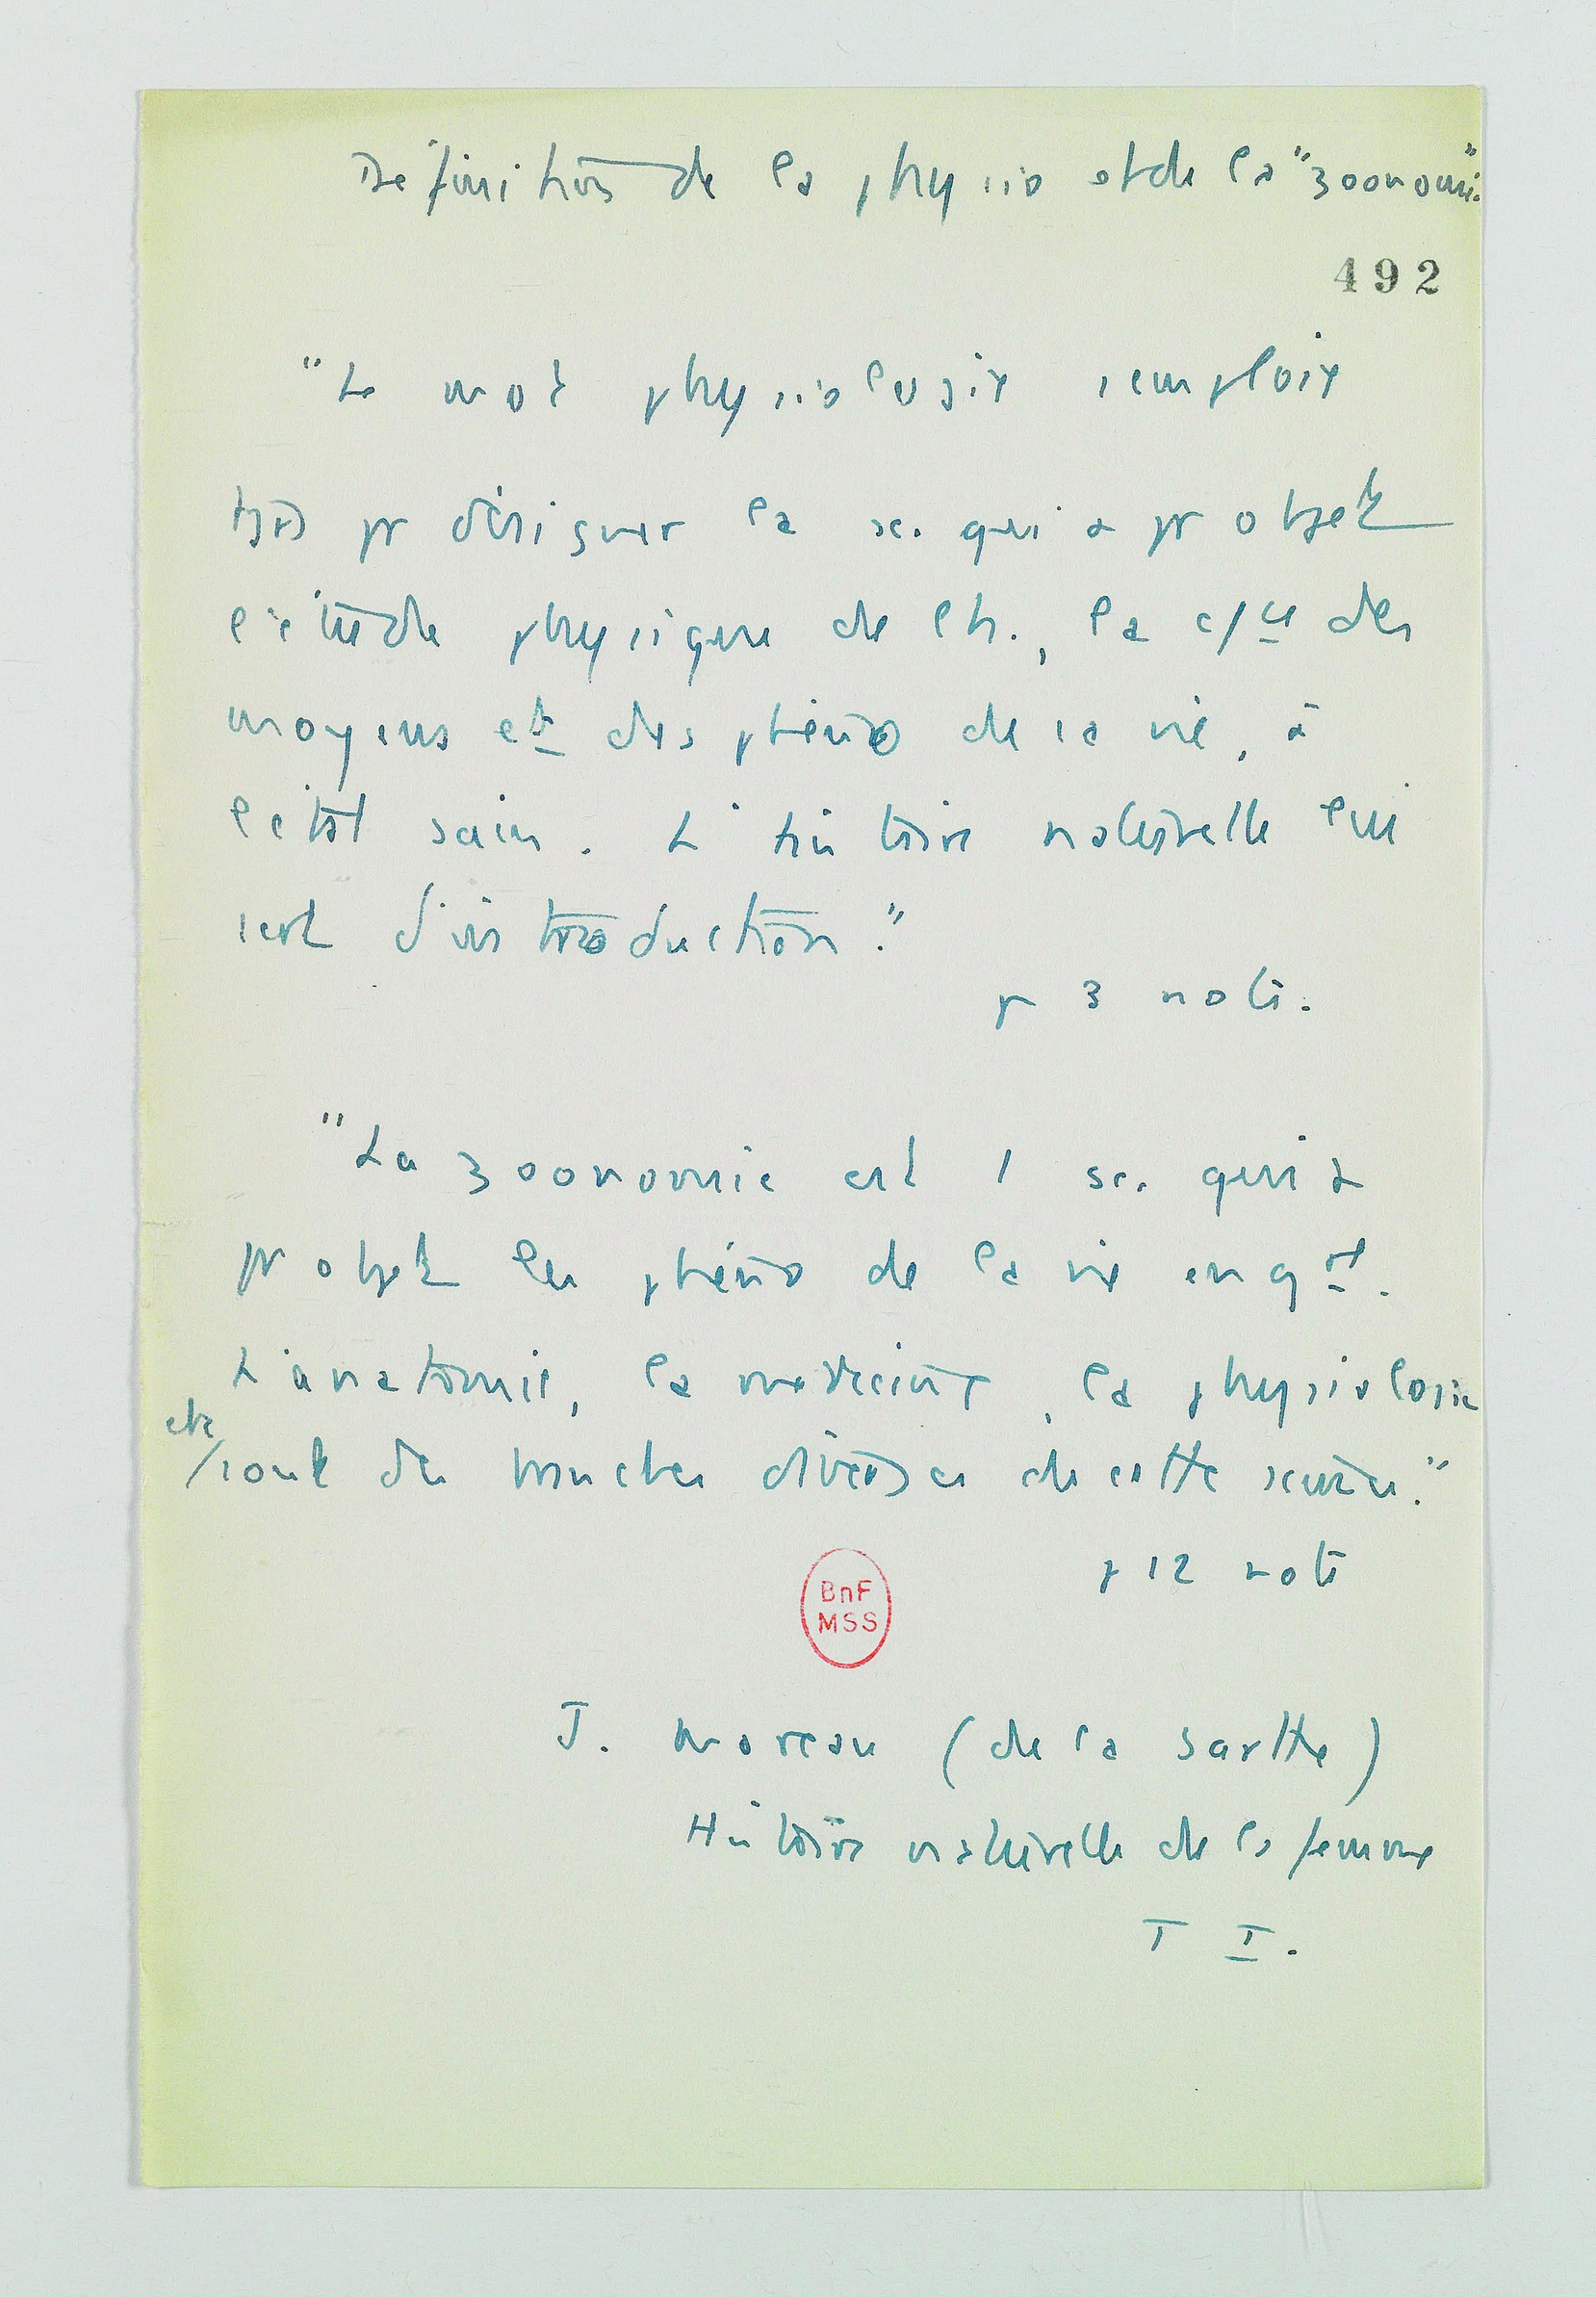 Définition de la physio et de la "zoonomie"
492
"Le mot physiologie s'emploie
pr désigner la sc. qui a pr objet
l'étude physique de l'h., la c/ce des
moyens et des phéno de la vie, à
l'état sain. L'histoire naturelle lui
sert d'introduction."
p 3 note.
"La zoonomie est 1 sc. qui a
pr objet les phéno de la vie en gal.
L'anatomie, la médecine, la physiologie
etc/sont des branches diverses de cette science."
p 12 note
BnF
MSS
J. Moreau (de la Sarthe)
Histoire naturelle de la femme
T I.